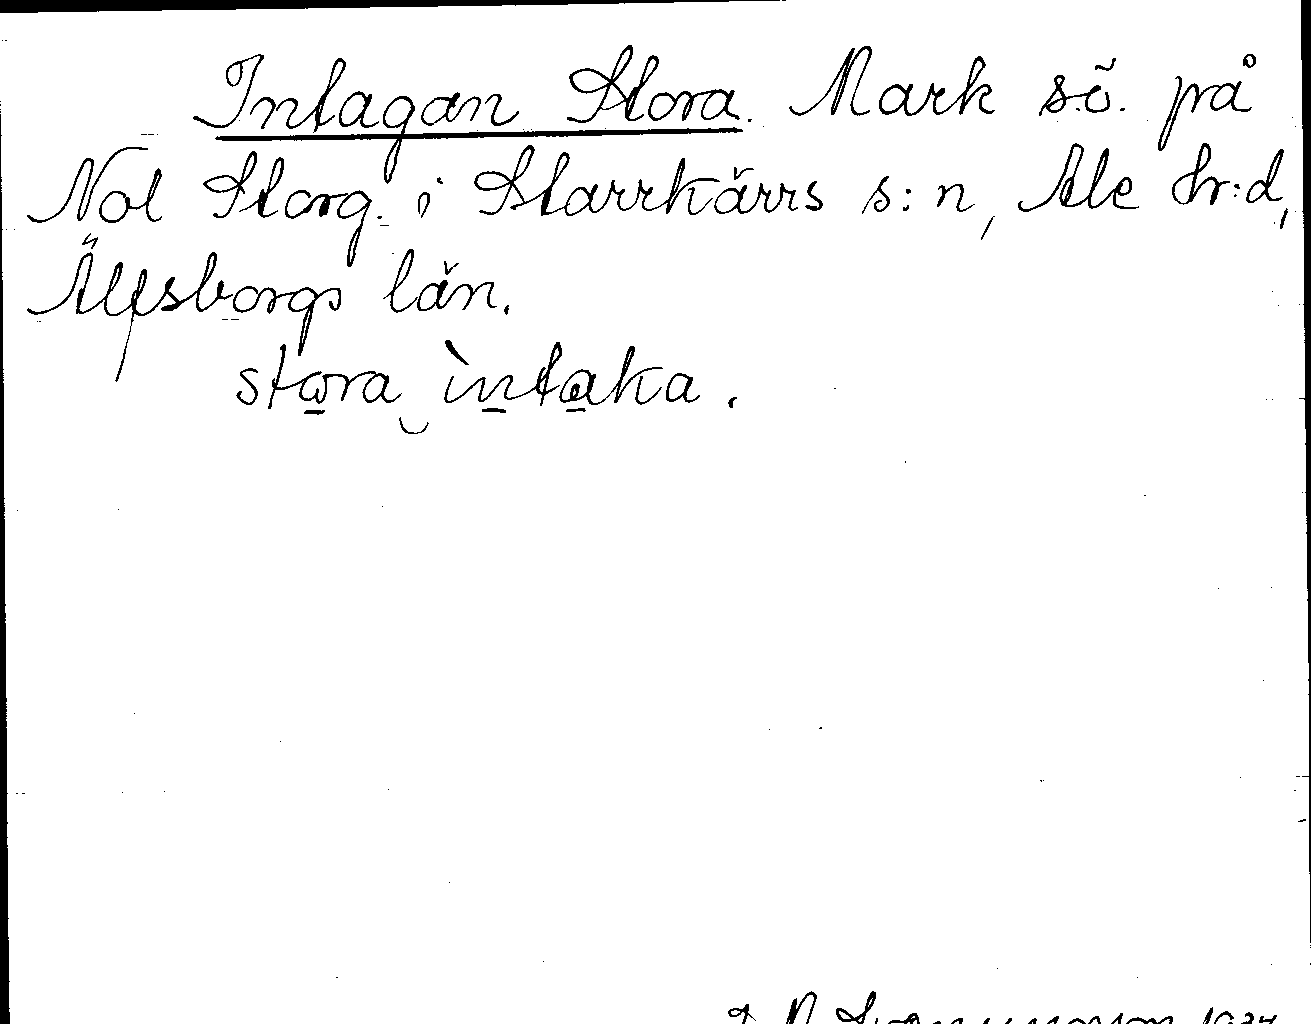 Intagan Stora. Mark s.ö. på
Nol Storg. i Starrkärrs s:n, Ale hr:d,
Älfsborgs län.
stora intaka.